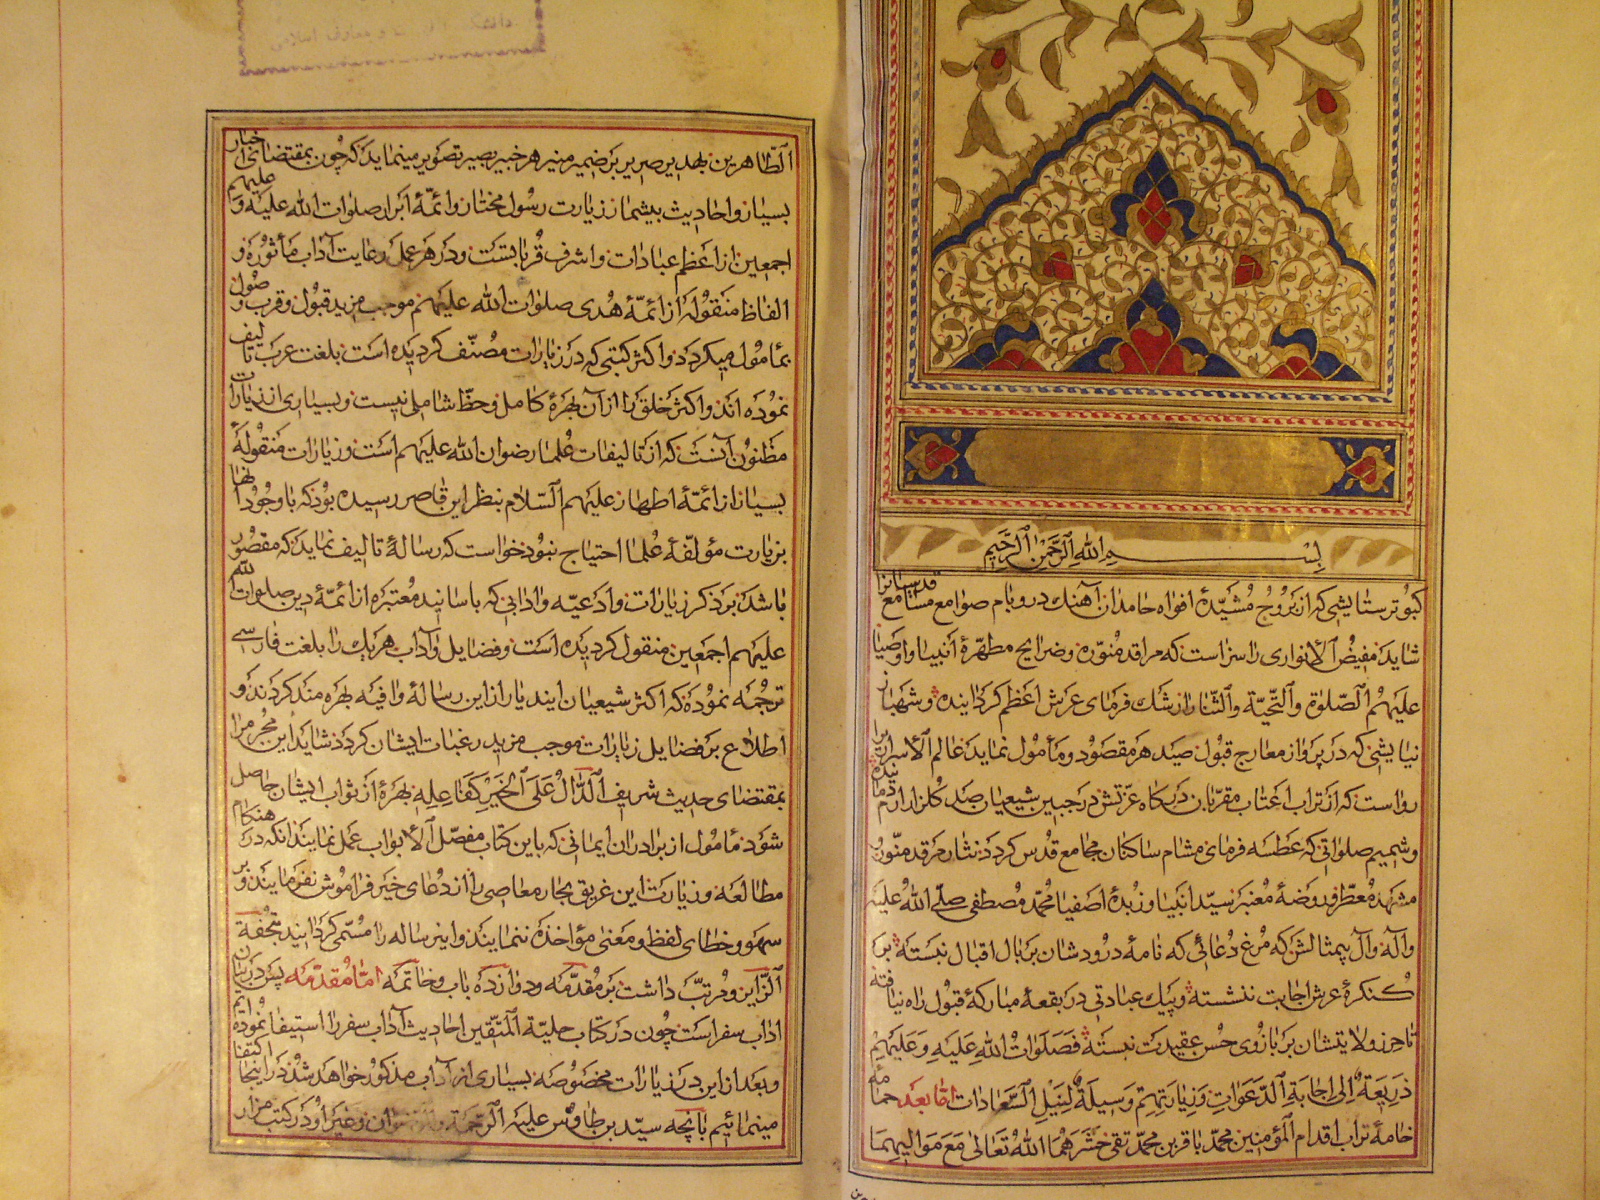 بسم الله الرحمن الرحیم
کبوتر ستایشی که از بروج مشیّدهٔ افواه حامدان آهنک در و بام صوامع مسامع قدسیانرا
شاید مفیض الانواری را سزاست که مراقد منوّره و ضرایح مطهّرهٔ انبیا و اوصیا
علیهم الصّلوة و التّحیّة و الثّنا را رشک فرمای عرش اعظم کردانیده و شهباز
نیایشی که در پرواز معارج قبول صید هر مقصود و مأمول نماید عالم الاسرار را
رواست که از تراب اعتاب مقرّبان درکاه عزّتش در جبین شیعیان صد کلزار ارم دمانیده
و شمیم صلواتی که عطسه فرمای مشام ساکنان مجامع قدس کردد نثار مرقد منوّر
مشهد معطّر و روضهٔ معنبر سیّد انبیا و زبدهٔ اصفیا محمّد مصطفی صلّی الله علیه
و آله و آل بیمثالش که مرغ دعائی که نامهٔ درودشان بر بال اقبال نبسته بر
کنکرهٔ عرش اجابت ننشسته و پیک عبادتی در بقعهٔ مبارکهٔ قبول راه نیافته
تا حرز ولایتشان بر بازوی حسن عقیدت نبسته فصلوات الله علیه و علیهم
ذریعة الی اجابة الدّعوات و زیارتهم وسیلة لنیل السّعادات امّا بعد
خامهٔ تراب اقدام المؤمنین محمّد باقر بن محمّد تقی حشرهما الله تعالی مع موالیهما
الطّاهرین بهدیر صریر بر ضمیر منیر هر خبیر بصیر تصویر مینماید که چون بمقتضای اخبار
بسیار و احادیث بیشمار زیارت رسول مختار و ائمّهٔ ابرار صلوات الله علیه و علیهم
اجمعین از اعظم عبادات و اشرف قرباتست و در هر عمل رعایت آداب مأثوره و
الفاظ منقوله از ائمّهٔ هدی صلوات الله علیهم موجب مزید قبول و قرب وصول
بمأمول میکردد و اکثر کتبی که در زیارات مصنّف کردیده است بلغت عرب تألیف
نموده اند و اکثر خلق را از آن بهرهٔ کامل و حظّ شاملی نیست و بسیاری از زیارات
مظنون آنست که از تالیفات علما رضوان الله علیهم است و زیارات منقولهٔ
بسیار از ائمّهٔ اطهار علیهم السّلام بنظر این قاصر رسیده بود که با وجود آنها
بزیارت مؤلّفهٔ علما احتیاج نبود خواست که رسالهٔ تالیف نماید که مقصور
باشد بر ذکر زیارات و ادعیه و ادابی که باسانید معتبره از ائمّهٔ دین صلوات الله
علیهم اجمعین منقول کردیده است و فضایل و آداب هر یک را بلغت فارسی
ترجمه نموده که اکثر شیعیان این دیار از این رسالهٔ وافیه بهره مند کردند و
اطلاع بر فضایل زیارات موجب مزید رغبات ایشان کردد شاید این مجرم را
بمقتضای حدیث شریف الدّالّ علی الخیر کفاعله بهرهٔ از ثواب ایشان حاصل
شود مأمول از برادران ایمانی که باین کتاب مفصّل الابواب عمل نمایند انکه در هنکام
مطالعه و زیارت این غریق بحار معاصی را از دعای خیر فراموش نفرمایند و بر
سهو و خطای لفظ و معنی مؤاخذه ننمایند و این رساله را مسمّی کردانید بتحفة
الزّایر و مرتّب داشت بر مقدّمه و دوازده باب و خاتمه امّا مقدّمه پس در بیان
اداب سفر است چون در کتاب حلیة المتّقین احادیث آداب سفر را استیفا نموده ایم
و بعد از این در زیارات مخصوصه بسیاری از آداب مذکور خواهد شد در اینجا اکتفا
مینمائیم بآنچه سیّد بن طاوس علیه الرّحمة و غیر او در کتب مزار